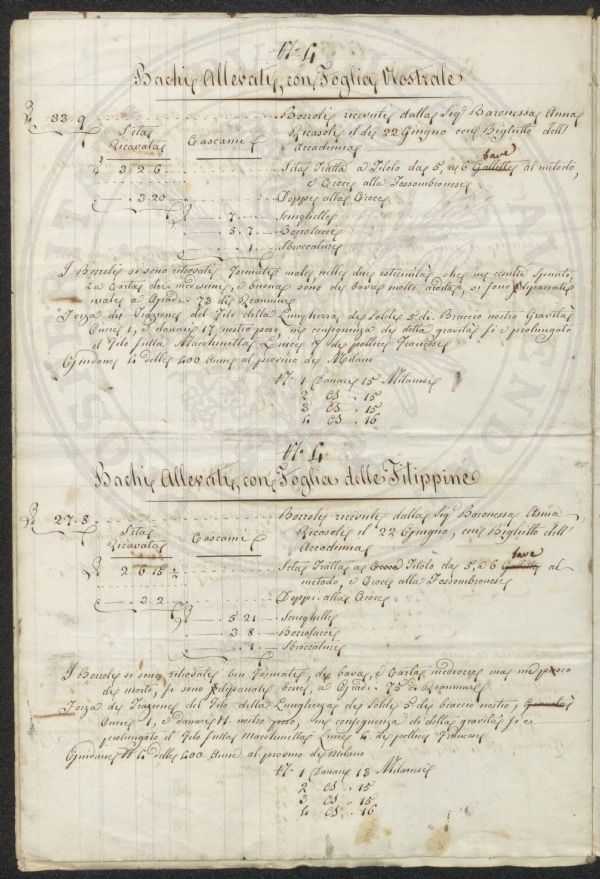 N.° 4
Bachi Allevati, con Foglia Nostrale
33. 9. Bozzoli ricevuti dalla Sig.ra Baronessa Anna
Seta Ricavata
Cascami
Ricasoli il dì 22 Giugno con Biglietto dell'
Accademia
3 2 6 Seta Tratta a Titolo da 5, a 6 Gallette bave al metodo,
e Croce alla Fossombronese
3 20 Doppi alla Croce
7 Senighella
5. 7 Bozzolacci
1 Sbroccature
I Bozzoli si sono ritrovati Formati male nelle due estremità che
La Carta dei medesimi, è buona sono di bava molto si sono dipanati
male a Gradi 73 di Reaumur
Forza di Trazione del Filo della Lunghezza di Soldi 5 di Braccio nostro Gravità
Oncie 1, e danari 17 nostro peso, in conseguenza di detta gravità si è prolungato
il Filo sulla Macchinetta Linee 7 di pollice Francese
4 delle 400 Anne al provino di Milano
N.° 1 Danari 15 Milanesi
2 Id. 15
3 Id. 15
4 Id. 16
N.° 4
Bachi Allevati, con Foglia delle Filippine
27. 8 Bozzoli ricevuti dalla Sig.ra Baronessa Anna
Seta Ricavata
Cascami
Ricasoli il 22 Giugno, con Biglietto dell'
Accademia
2 6 15 ½ Seta Tratta, a Croce Titolo da 5, a 6 Gallette bave al
metodo, e Croce alla Fossombronese
3. 2 Doppi alla Croce
5. 21 Senighella
3 8 Bozzolacci
1 Sbroccature
I Bozzoli si sono ritrovati ben Formati, di bava, e Carta mediocre ma un poco
di morto, si sono dipanati bene, a Gradi 75 di Reaumur
Forza di Trazione del Filo della Lunghezza di Soldi 5 di braccio nostro, Gravità
Oncie 1, e danari 11 nostro peso, in conseguenza di detta gravità si è
prolungato il Filo sulla Macchinetta Linee 4 di pollice Francese
4 delle 400 Anne al provino di Milano
N.° 1 Danari 13 Milanesi
2 Id. 15
3 Id. 15
4 Id. 16